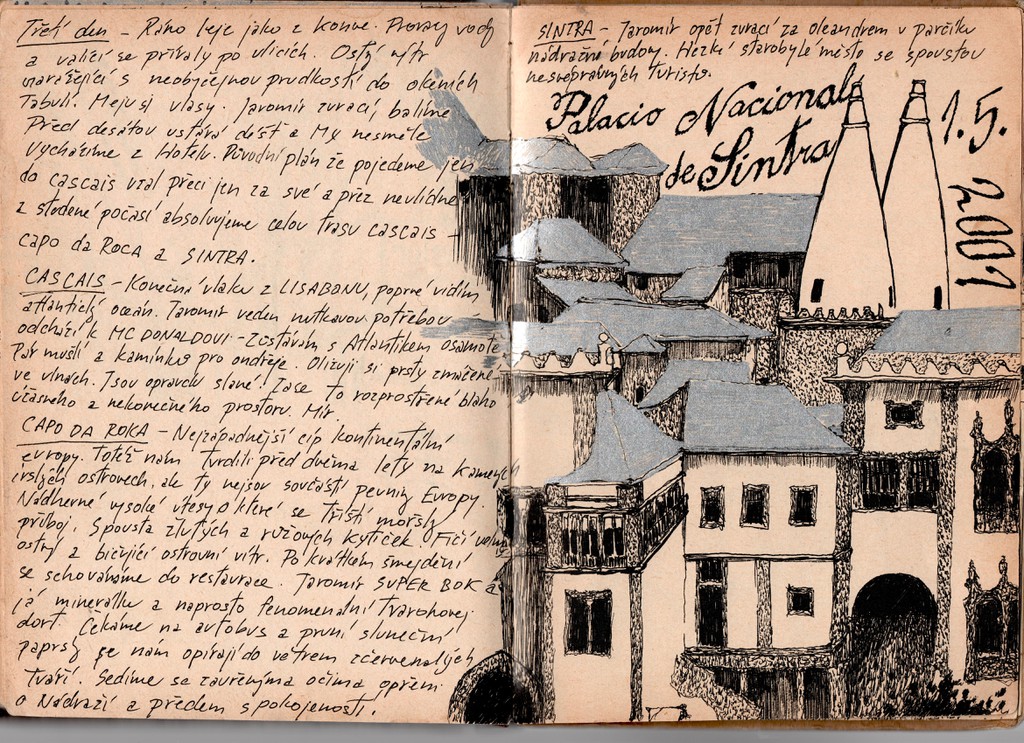 Třetí den - Ráno leje jako z konve. Provazy vody
a valící se přívaly po ulicích. Ostrý vítr
narážející s neobyčejnou prudkostí do okeních
tabulí. Meju si vlasy. Jaromír zvrací, balíme
Před desátou ustává déšť a My nesměle
vycházíme z Hotelu. Původní plán že pojedeme jen
do cascais vzal přeci jen za své a přez nevlídné
z studené počasí absolvujeme celou trasu cascais -
capo da ROCA a SINTRA.
CASCAIS - Konečná vlaku z LISABONU, poprvé vidím
atlantický oceán. Jaromír veden nutkavou potřebou
odchází k MC DONALDOVI - zůstávám s Atlantikem osamotě
Pár mušlí a kamínků pro ondřeje. Olizuji si prsty zmáčené
ve vlnách. Jsou opravdu slané! Zase to rozprostřené blaho
úžasného a nekonečného prostoru. Mír.
CAPO DA ROKA - Nejzápadnější cíp kontinentální
evropy. Totéž nám tvrdili před dvěma lety na kamenných
irských ostrovech, ale ty nejsou součástí pevniny Evropy.
Nádherné vysoké útesy o které se tříští mořský
příboj. Spousta žlutých a růžových kytiček. Fičí
ostrý a bičující ostrovní vítr. Po krátkém šmejdění
se schováváme do restaurace. Jaromír SUPER BOK a
já minerálku a naprosto fenomenální tvarohovej
dort. Čekáme na autobus a první sluneční
paprsky se nám opírají do větrem zčervenalých
tváří. Sedíme se zavřenýma očima opřeni
o Nádraží a předem spokojenosti.
SINTRA - Jaromír opět zvrací za oleandrem v parčíku
nádražní budovy. Hezké starobylé město se spoustou
nesvéprávných turistů.
Palacio Nacional
de Sintra
1.5.
2001